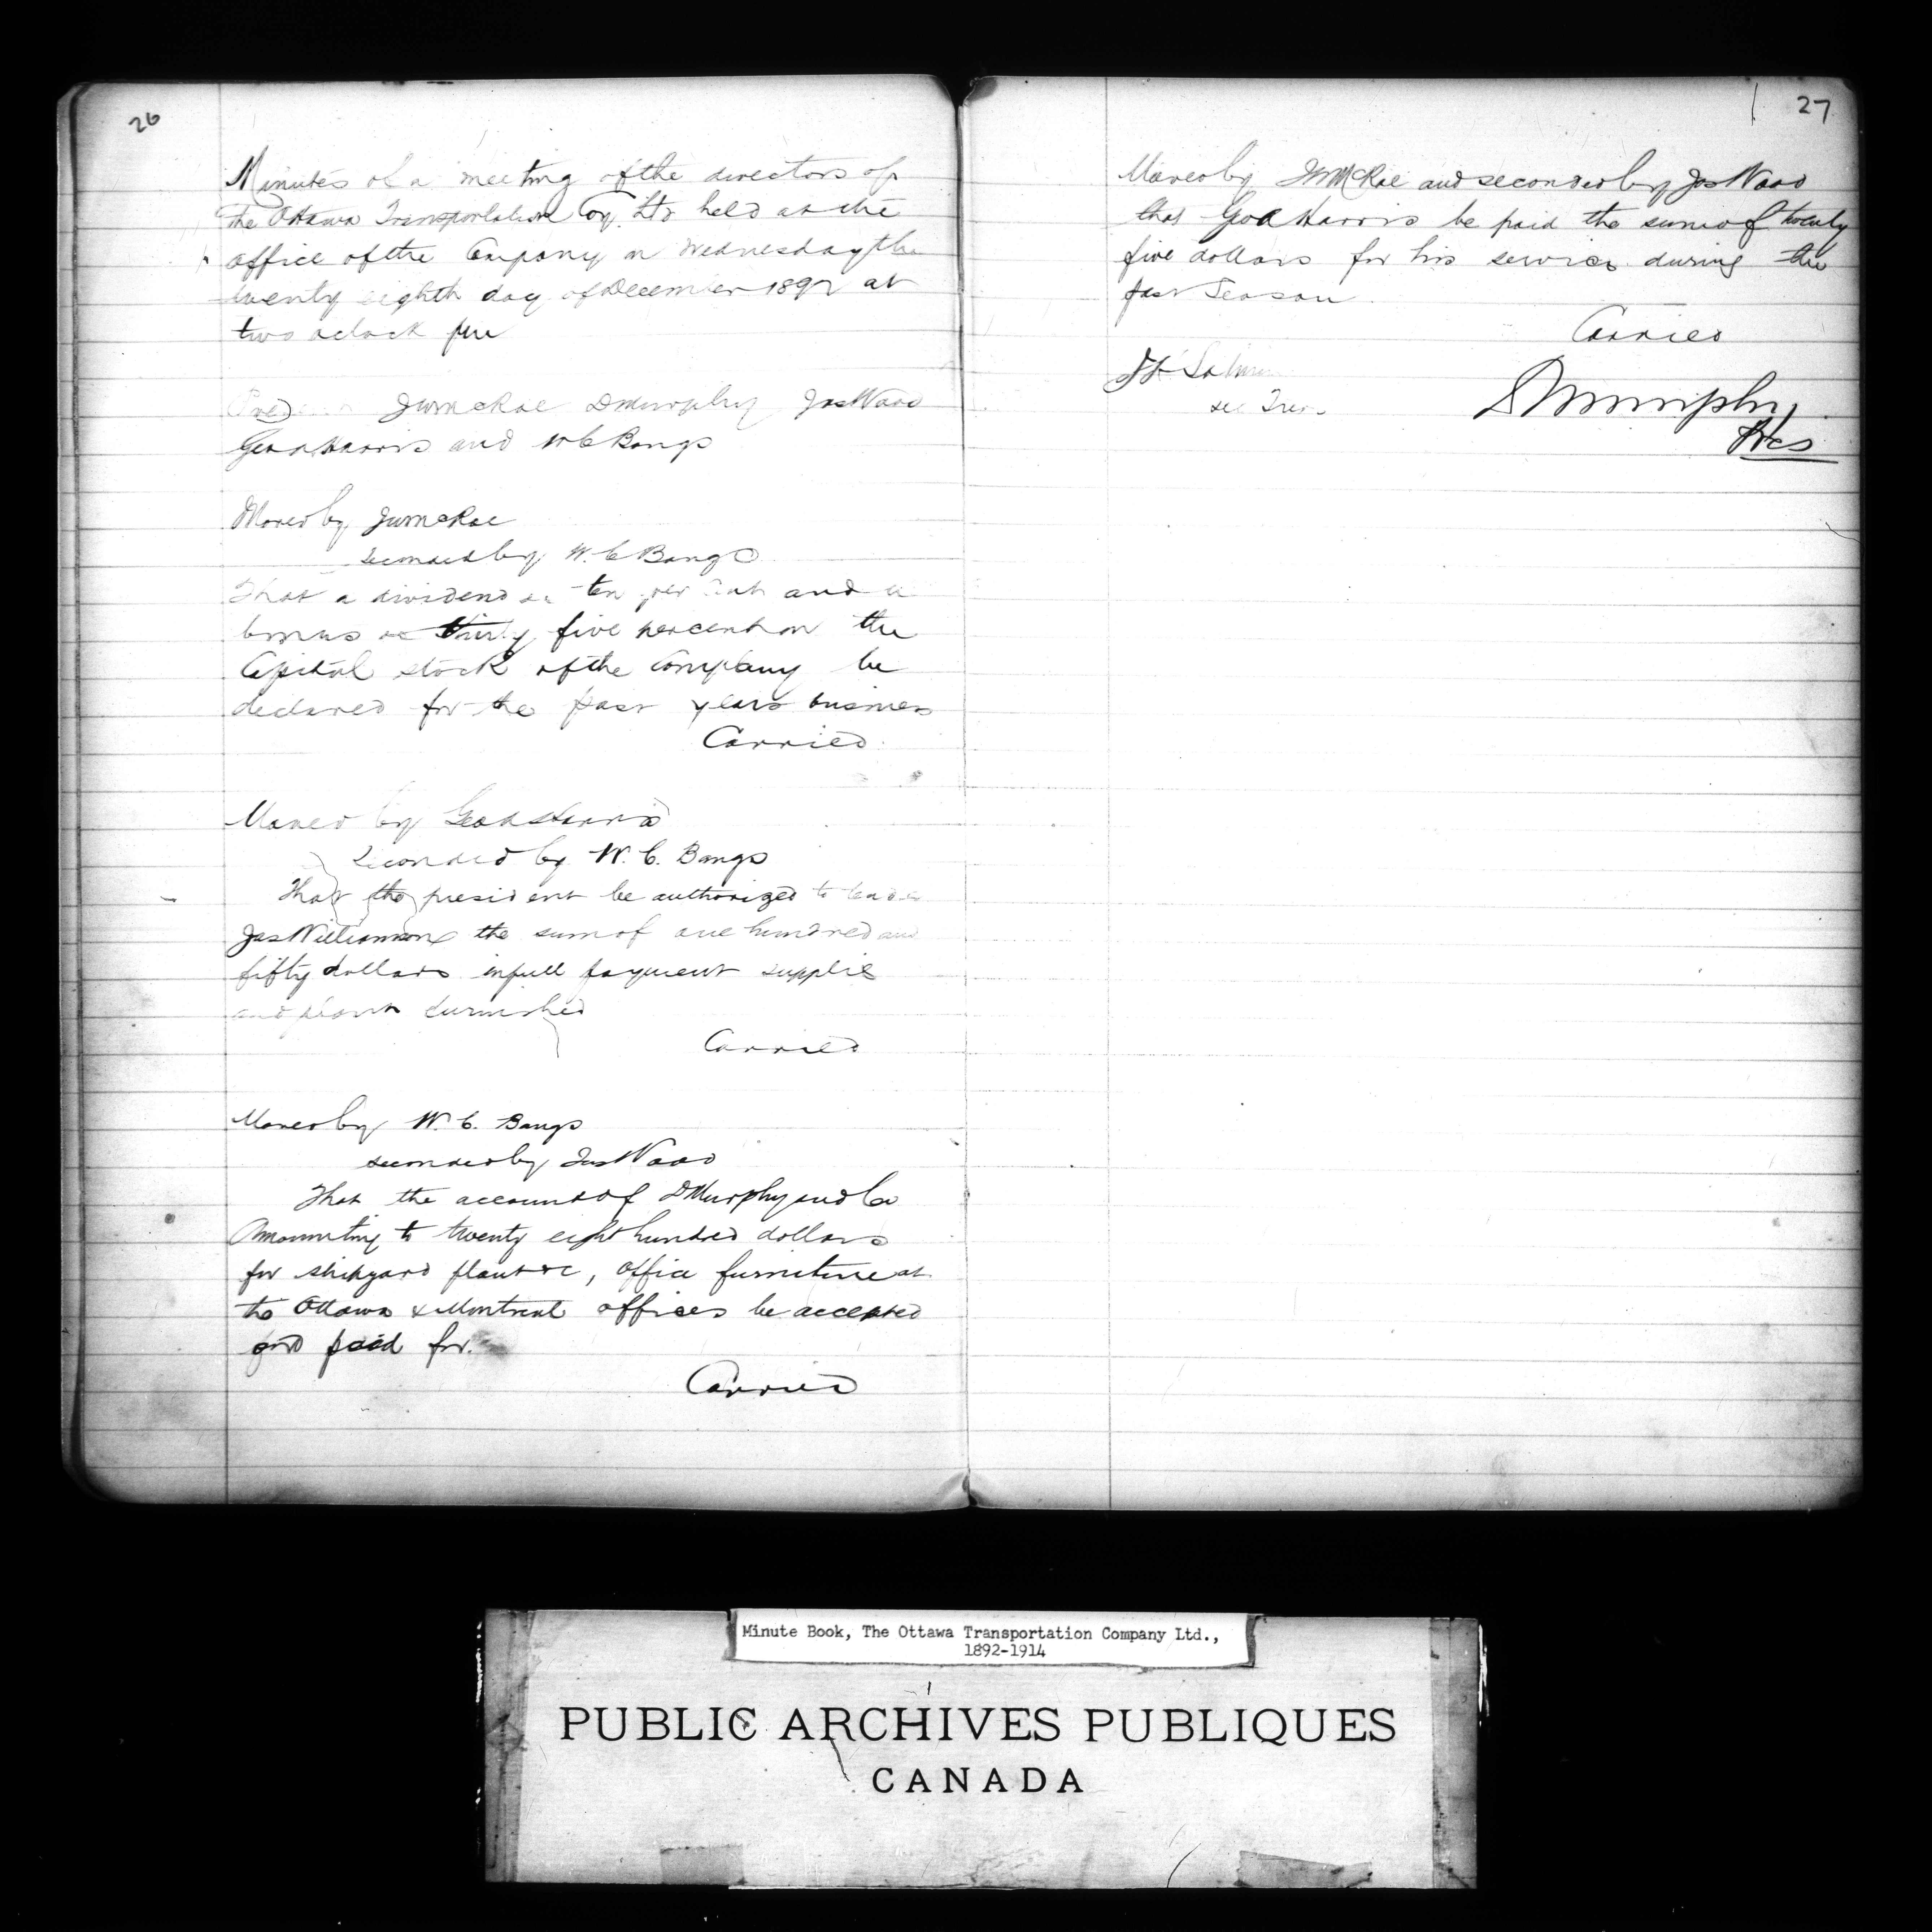 26
Minutes of a meeting of the directors of
The Ottawa Transportation Coy. Ltd held at the
office of the Company on Wednesday the
twenty eighth day of December 1892 at
two oclock pm
JW McRae D Murphy Jas Wood
Geo A Harris and W C Bangs
Moved by JW McRae
seconded by W. C Bangs
That a dividend of ten per cent and a
bonus of thirty five percent on the
Capital stock of the Company be
declared for the past years business
Carried
Moved by Geo A Harris
Seconded by W. C. Bangs
That the president be authorized to
Jas Williamson the sum of one hundred and
fifty dollars in full payment supplies
and plant furnished
Carried
Moved by W. C. Bangs
seconded by Jas Wood
That the account of D Murphy and Co
Amounting to twenty eight hundred dollars
for shipyard plant &c, office furniture at
the Ottawa & Montreal offices be accepted
and paid for.
Carried
27
Moved by JW McRae and seconded by Jas Wood
that Geo A Harris be paid the sum of twenty
five dollars for his services during the
past Season
Carried
sec Treas
D Murphy
Pres
Minute Book, The Ottawa Transportation Company Ltd.,
1892-1914
PUBLIC ARCHIVES PUBLIQUES
CANADA